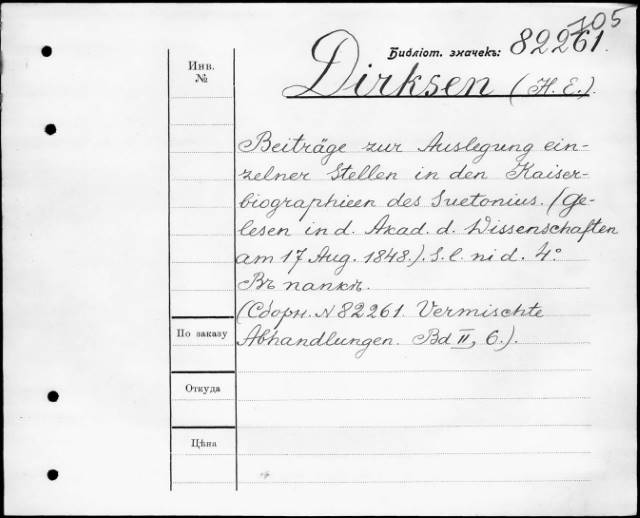 705
Библіот. значекъ: 82261.
Инв.
№
Dirksen (H. E.).
Beiträge zur Auslegung ein-
zelner Stellen in den Kaiser-
biographieen des Suetonius. (Ge-
lesen in d. Akad. d. Wissenschaften
am 17 Aug. 1848.). S. l. ni d. 4°.
Въ папкѣ.
(Сборн. № 82261. Vermischte
По заказу
Abhandlungen. Bd II, 6.).
Откуда
Цѣна